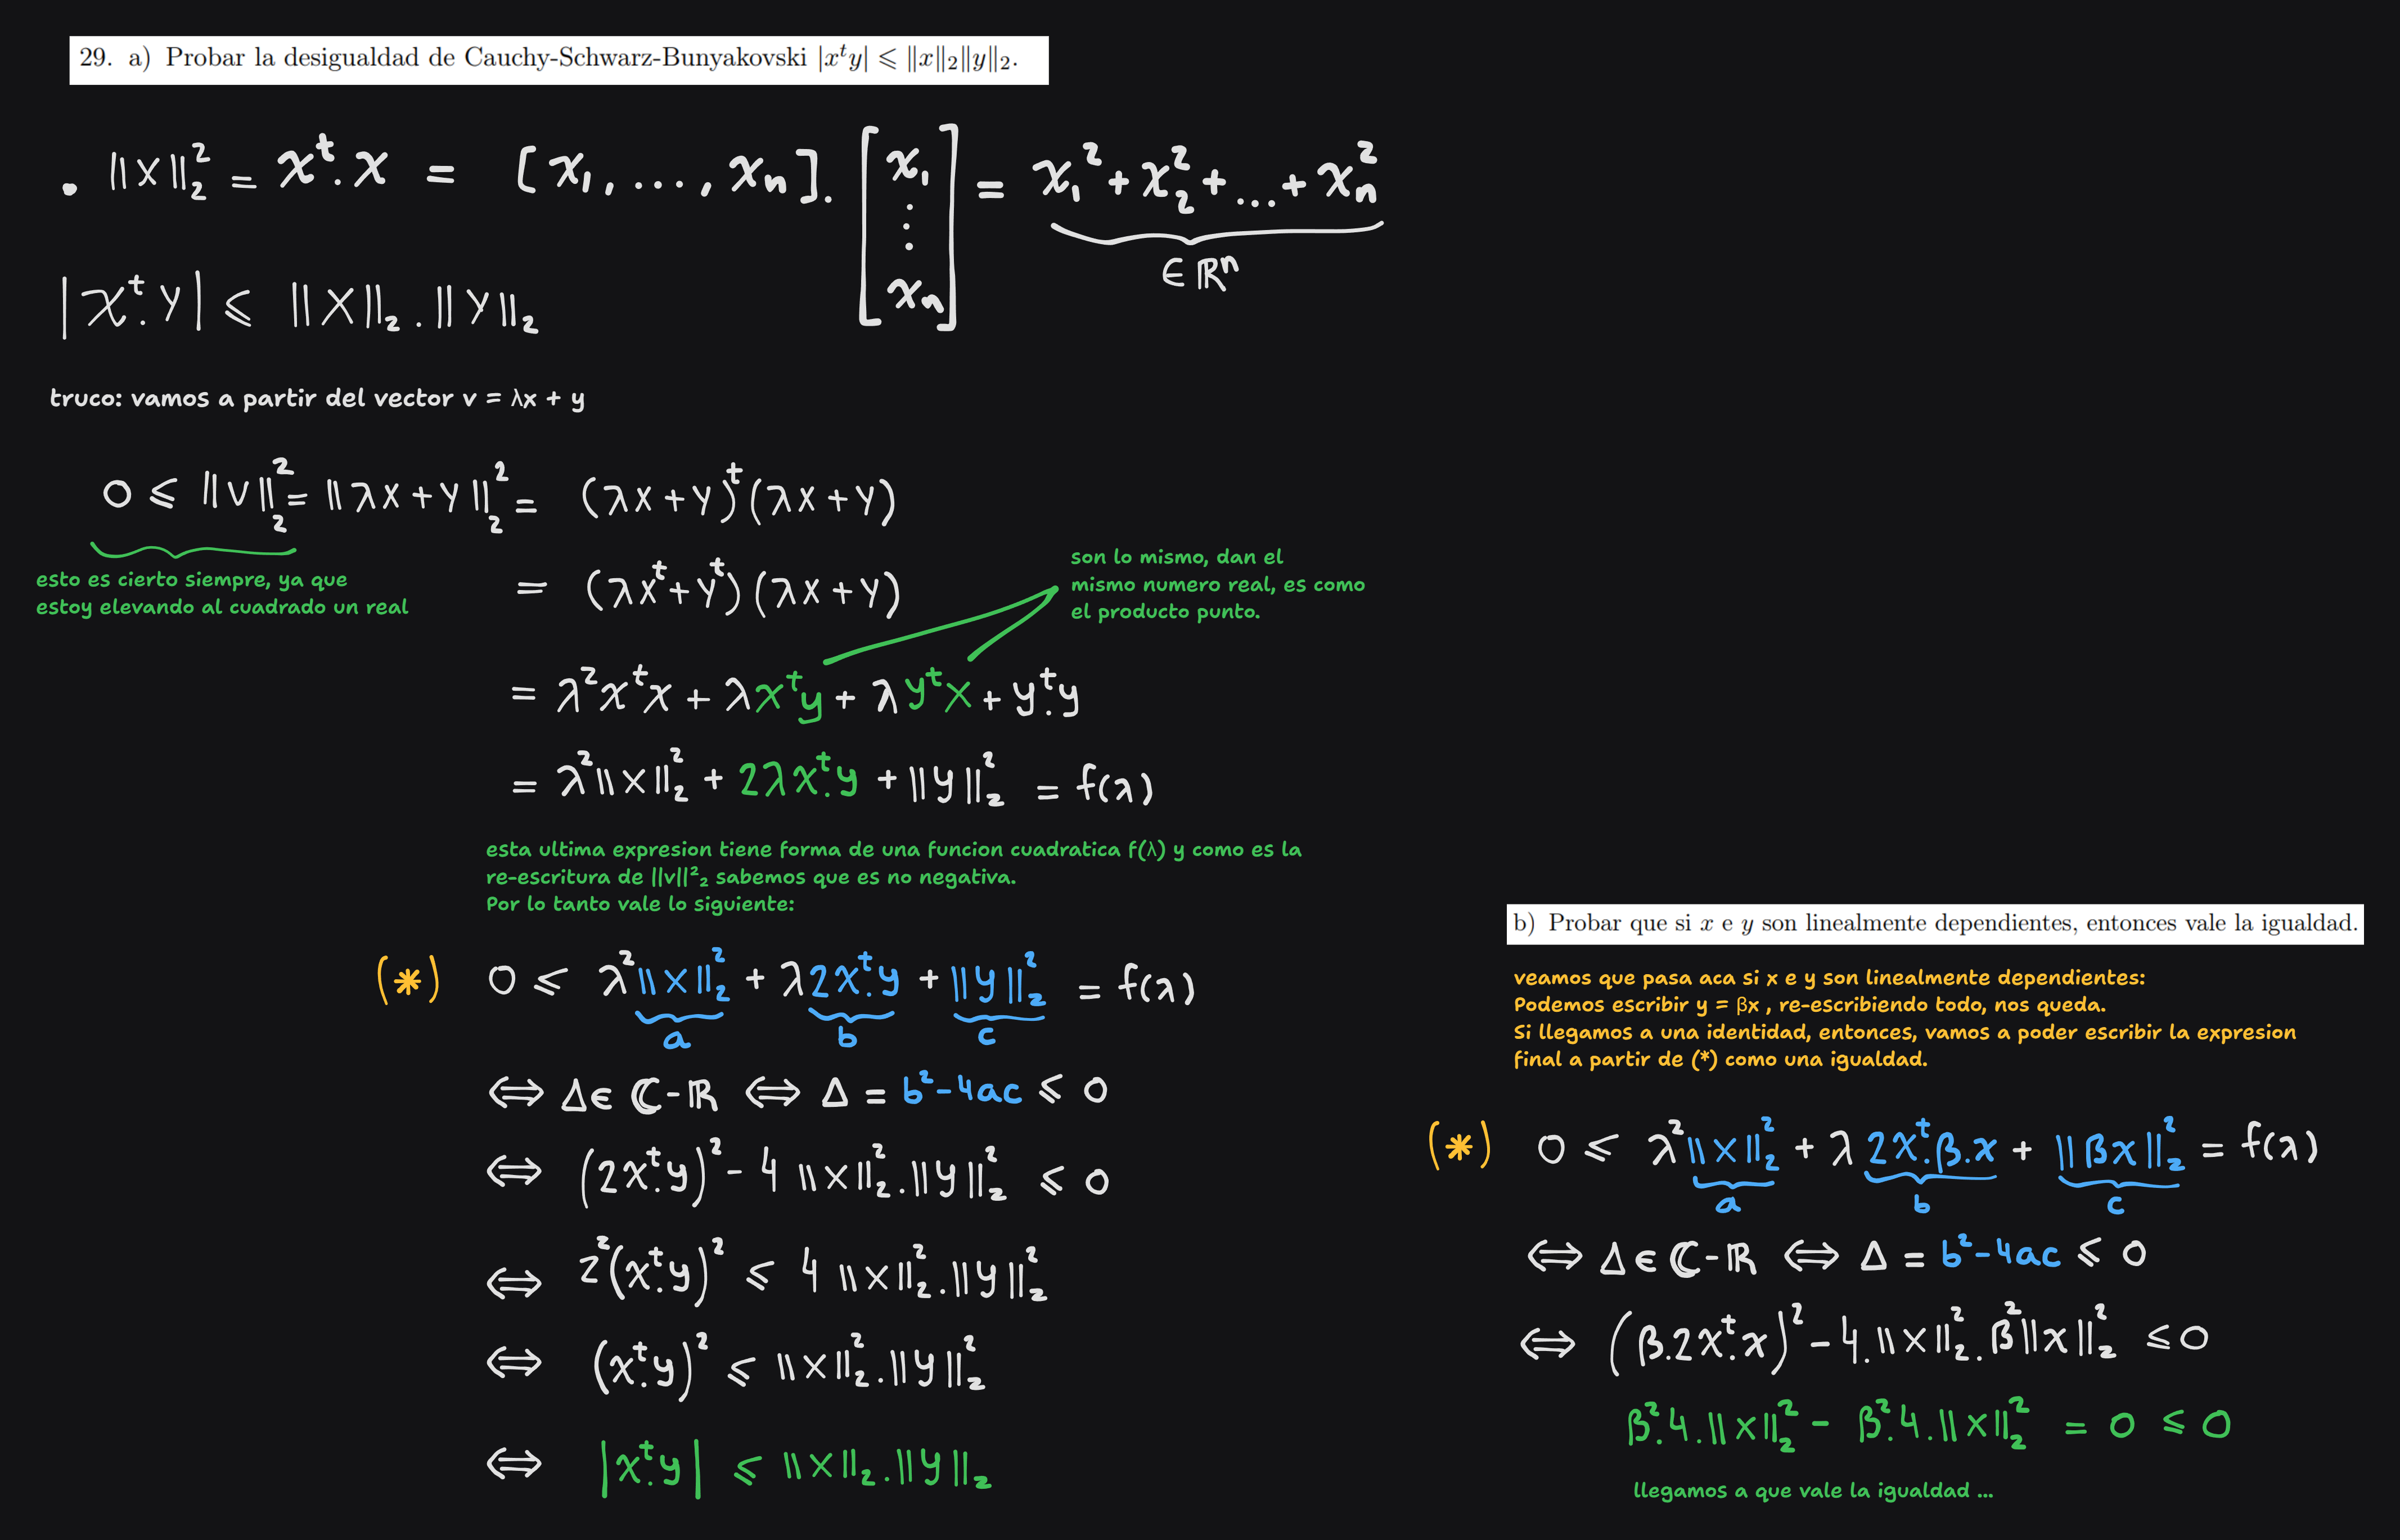 29. a) Probar la desigualdad de Cauchy-Schwarz-Bunyakovski |xᵗy| ⩽ ‖x‖₂‖y‖₂.
• ||x||₂² = xᵗ.x = [x₁, ..., xₙ] . [x₁ ⋮ xₙ] = x₁² + x₂² + ... + xₙ²
∈ ℝⁿ
|xᵗ.y| ⩽ ||x||₂ . ||y||₂
truco: vamos a partir del vector v = λx + y
0 ⩽ ||v||₂² = ||λx + y||₂² = (λx + y)ᵗ (λx + y)
esto es cierto siempre, ya que
estoy elevando al cuadrado un real
= (λxᵗ + yᵗ) (λx + y)
son lo mismo, dan el
mismo numero real, es como
el producto punto.
= λ²xᵗx + λxᵗy + λyᵗx + yᵗ.y
= λ²||x||₂² + 2λxᵗ.y + ||y||₂² = f(λ)
esta ultima expresion tiene forma de una funcion cuadratica f(λ) y como es la
re-escritura de ||v||²₂ sabemos que es no negativa.
Por lo tanto vale lo siguiente:
(*) 0 ⩽ λ²||x||₂² + λ2xᵗ.y + ||y||₂² = f(λ)
a b c
⟺ Δ ∈ ℂ-ℝ ⟺ Δ = b²-4ac ⩽ 0
⟺ (2xᵗ.y)² - 4 ||x||₂² . ||y||₂² ⩽ 0
⟺ 2²(xᵗ.y)² ⩽ 4 ||x||₂² . ||y||₂²
⟺ (xᵗ.y)² ⩽ ||x||₂² . ||y||₂²
⟺ |xᵗ.y| ⩽ ||x||₂ . ||y||₂
b) Probar que si x e y son linealmente dependientes, entonces vale la igualdad.
veamos que pasa aca si x e y son linealmente dependientes:
Podemos escribir y = βx , re-escribiendo todo, nos queda.
Si llegamos a una identidad, entonces, vamos a poder escribir la expresion
final a partir de (*) como una igualdad.
(*) 0 ⩽ λ²||x||₂² + λ 2xᵗ.β.x + ||βx||₂² = f(λ)
a b c
⟺ Δ ∈ ℂ-ℝ ⟺ Δ = b²-4ac ⩽ 0
⟺ (β.2xᵗ.x)² - 4.||x||₂² . β²||x||₂² ⩽ 0
β².4.||x||₂² - β².4.||x||₂² = 0 ⩽ 0
llegamos a que vale la igualdad ...